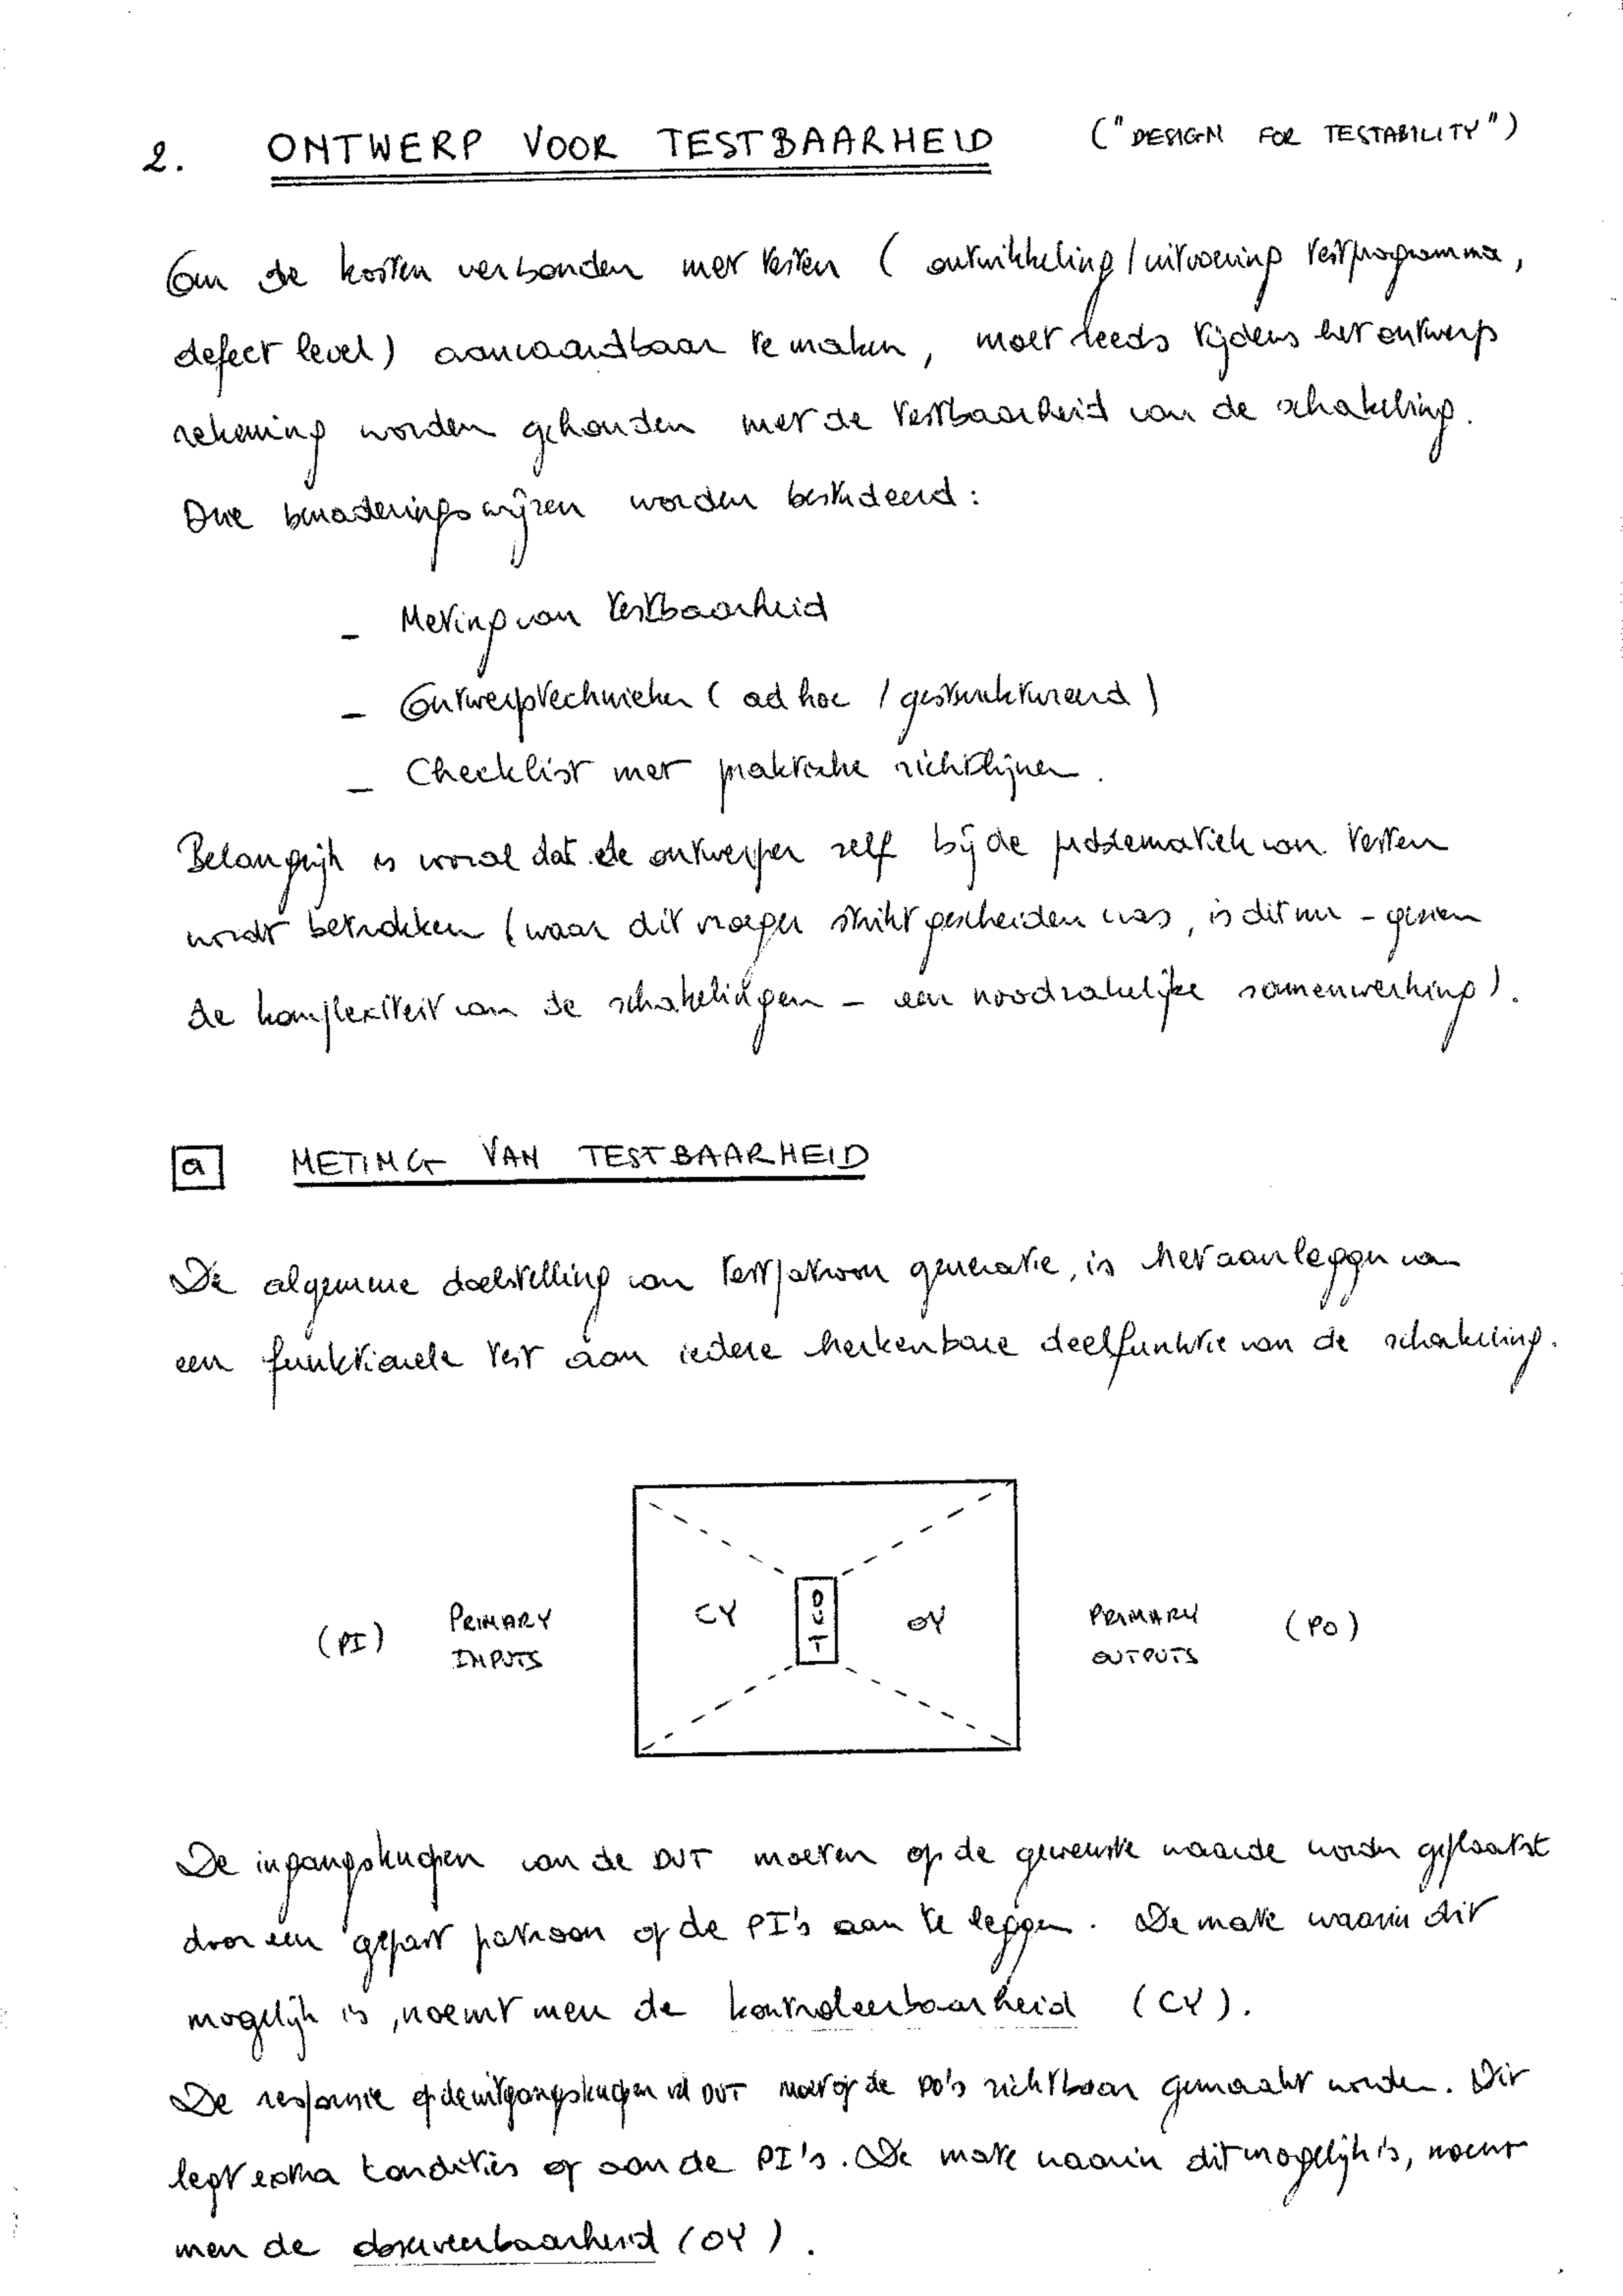 2. ONTWERP VOOR TESTBAARHEID ("DESIGN FOR TESTABILITY")
Om de kosten verbonden met testen (ontwikkeling/uitvoering testprogramma,
defect level) aanvaardbaar te maken, moet reeds tijdens het ontwerp
rekening worden gehouden met de testbaarheid van de schakeling.
Drie benaderingswijzen worden bestudeerd:
- Meting van testbaarheid
- Ontwerptechnieken (ad hoc / gestruktureerd)
- Checklist met praktische richtlijnen.
Belangrijk is vooral dat de ontwerper zelf bij de problematiek van testen
wordt betrokken (waar dit vroeger strikt gescheiden was, is dit nu - gezien
de komplexiteit van de schakelingen - een noodzakelijke samenwerking).
a METING VAN TESTBAARHEID
De algemene doelstelling van testpatroon generatie, is het aanleggen van
een funktionele test aan iedere herkenbare deelfunktie van de schakeling.
(PI) PRIMARY INPUTS
CY
DUT
OY
PRIMARY OUTPUTS (PO)
De ingangsknopen van de DUT moeten op de gewenste waarde worden geplaatst
door een gepast patroon op de PI's aan te leggen. De mate waarin dit
mogelijk is, noemt men de kontroleerbaarheid (CY).
De responsie op de uitgangsknopen vd DUT moet op de PO's zichtbaar gemaakt worden. Dit
legt extra kondities op aan de PI's. De mate waarin dit mogelijk is, noemt
men de observeerbaarheid (OY).